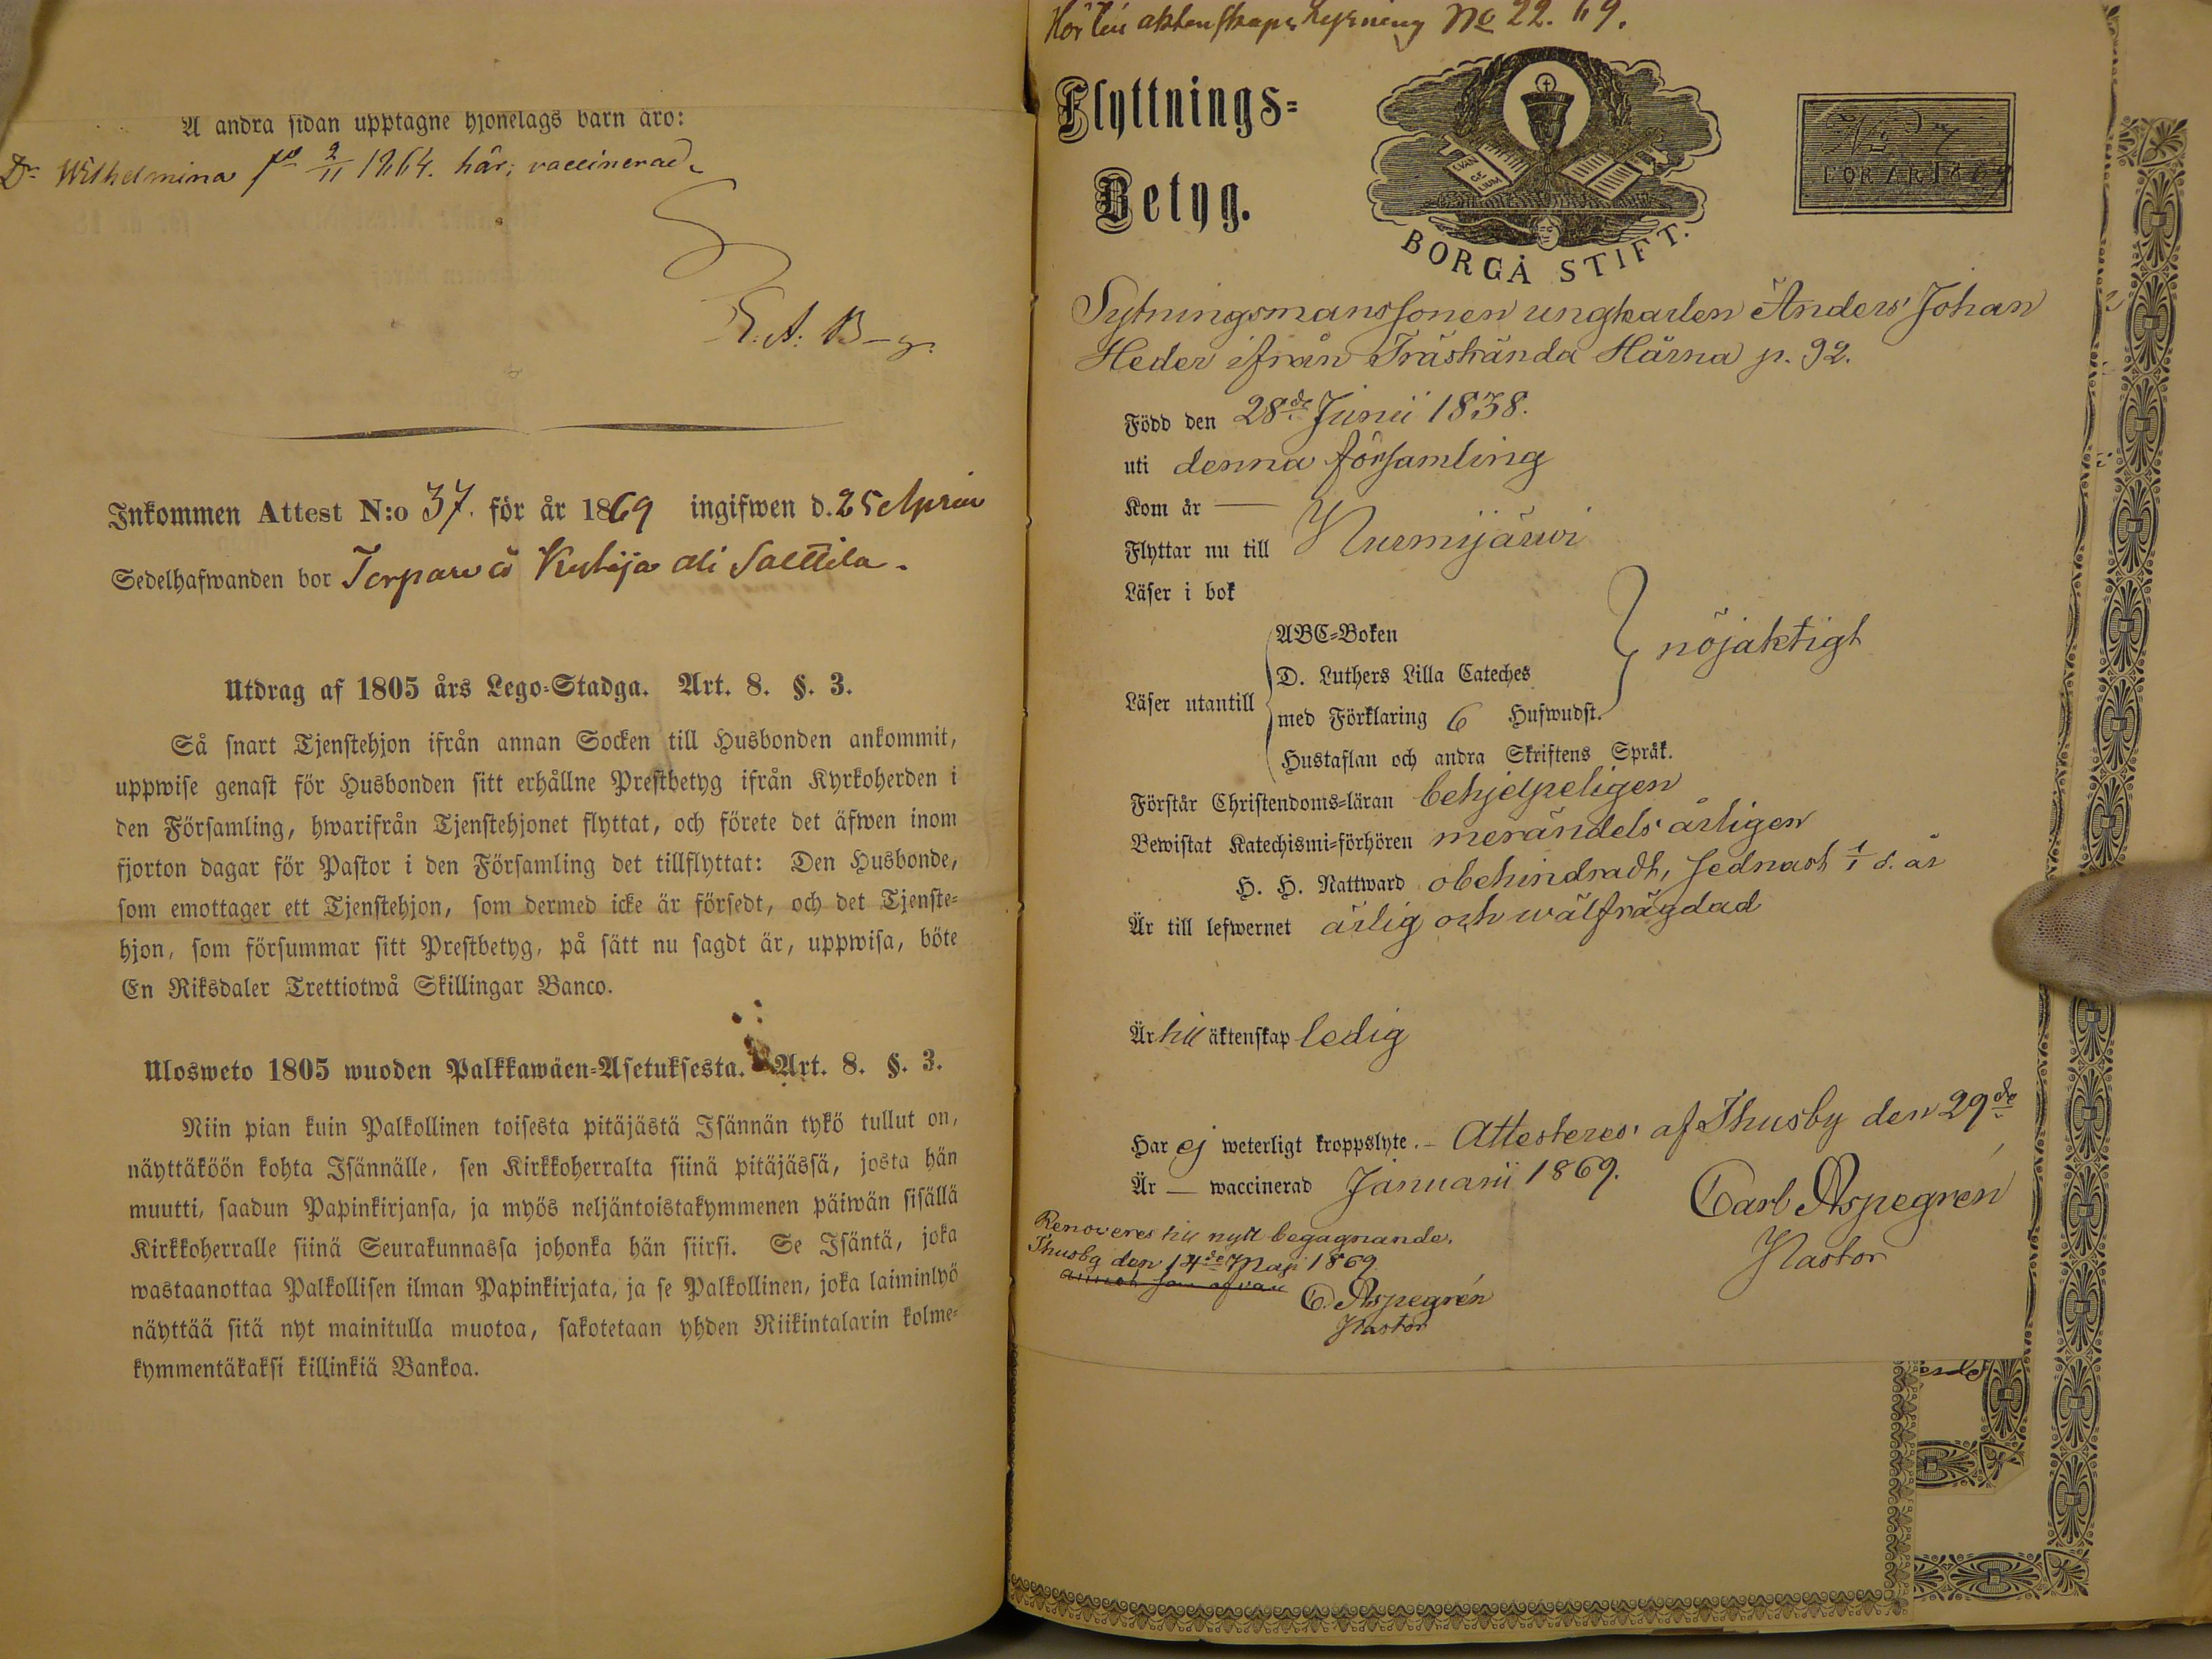 Å andra sidan upptagne hjonelags barn äro:
Dr Wilhelmina fd 2/11 1864. här; vaccinerad.
Inkommen Attest N:o 37. för år 1869 ingifwen d. 25 April
Sedelhafwanden bor Torpare å
Utdrag af 1805 års Lego-Stadga. Art. 8. §. 3.
Så snart Tjenstehjon ifrån annan Socken till Husbonden ankommit,
uppwise genast för Husbonden sitt erhållne Prestbetyg ifrån Kyrkoherden i
den Församling, hwarifrån Tjenstehjonet flyttat, och förete det äfwen inom
fjorton dagar för Pastor i den Församling det tillflyttat: Den Husbonde,
som emottager ett Tjenstehjon, som dermed icke är försedt, och det Tjenste-
hjon, som försummar sitt Prestbetyg, på sätt nu sagdt är, uppwisa, böte
En Riksdaler Trettiotwå Skillingar Banco.
Ulosweto 1805 wuoden Palkkawäen-Asetuksesta. Art. 8. §. 3.
Niin pian kuin Palkollinen toisesta pitäjästä Isännän tykö tullut on,
näyttäköön kohta Isännälle, sen Kirkkoherralta siinä pitäjässä, josta hän
muutti, saadun Papinkirjansa, ja myös neljäntoistakymmenen päiwän sisällä
Kirkkoherralle siinä Seurakunnassa johonka hän siirsi. Se Isäntä, joka
wastaanottaa Palkollisen ilman Papinkirjata, ja se Palkollinen, joka laiminlyö
näyttää sitä nyt mainitulla muotoa, sakotetaan yhden Riikintalarin kolme-
kymmentäkaksi killinkiä Bankoa.
Hör till äktenskaps lysning No 22. 69.
Flyttnings-
Betyg.
EVAN
GE
LIUM
BORGÅ STIFT.
No 7
FÖR ÅR 1869
Sytningsmanssonen ungkarlen Anders Johan
Heder ifrån Träskända Härna p. 92.
Född den 28de Junii 1838.
uti denna församling
Kom år —
Flyttar nu till Nurmijärwi
Läser i bok
Läser utantill
ABC-Boken
D. Luthers Lilla Cateches
med Förklaring 6 Hufwudst.
Hustaflan och andra Skriftens Språk.
nöjaktigt
Förstår Christendoms-läran behjelpeligen
Bewistat Katechismi-förhören merändels årligen
H. H. Nattward obehindradt, sednast 1/1 d. år
Är till lefwernet ärlig och wälfrägdad
Är till äktenskap ledig
Har ej weterligt kroppslyte. – Attesteres af Thusby den 29de
Är — waccinerad Januarii 1869.
Carl Aspegrén
Pastor
Renoveres till nytt begagnande.
Thusby den 14de Maji 1869.
C. Aspegrén
Pastor